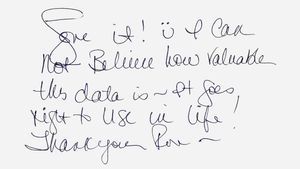 Love it! ü I Can
not Believe how valuable
this data is ~ It goes
right to use in life!
Thank you Ron ~